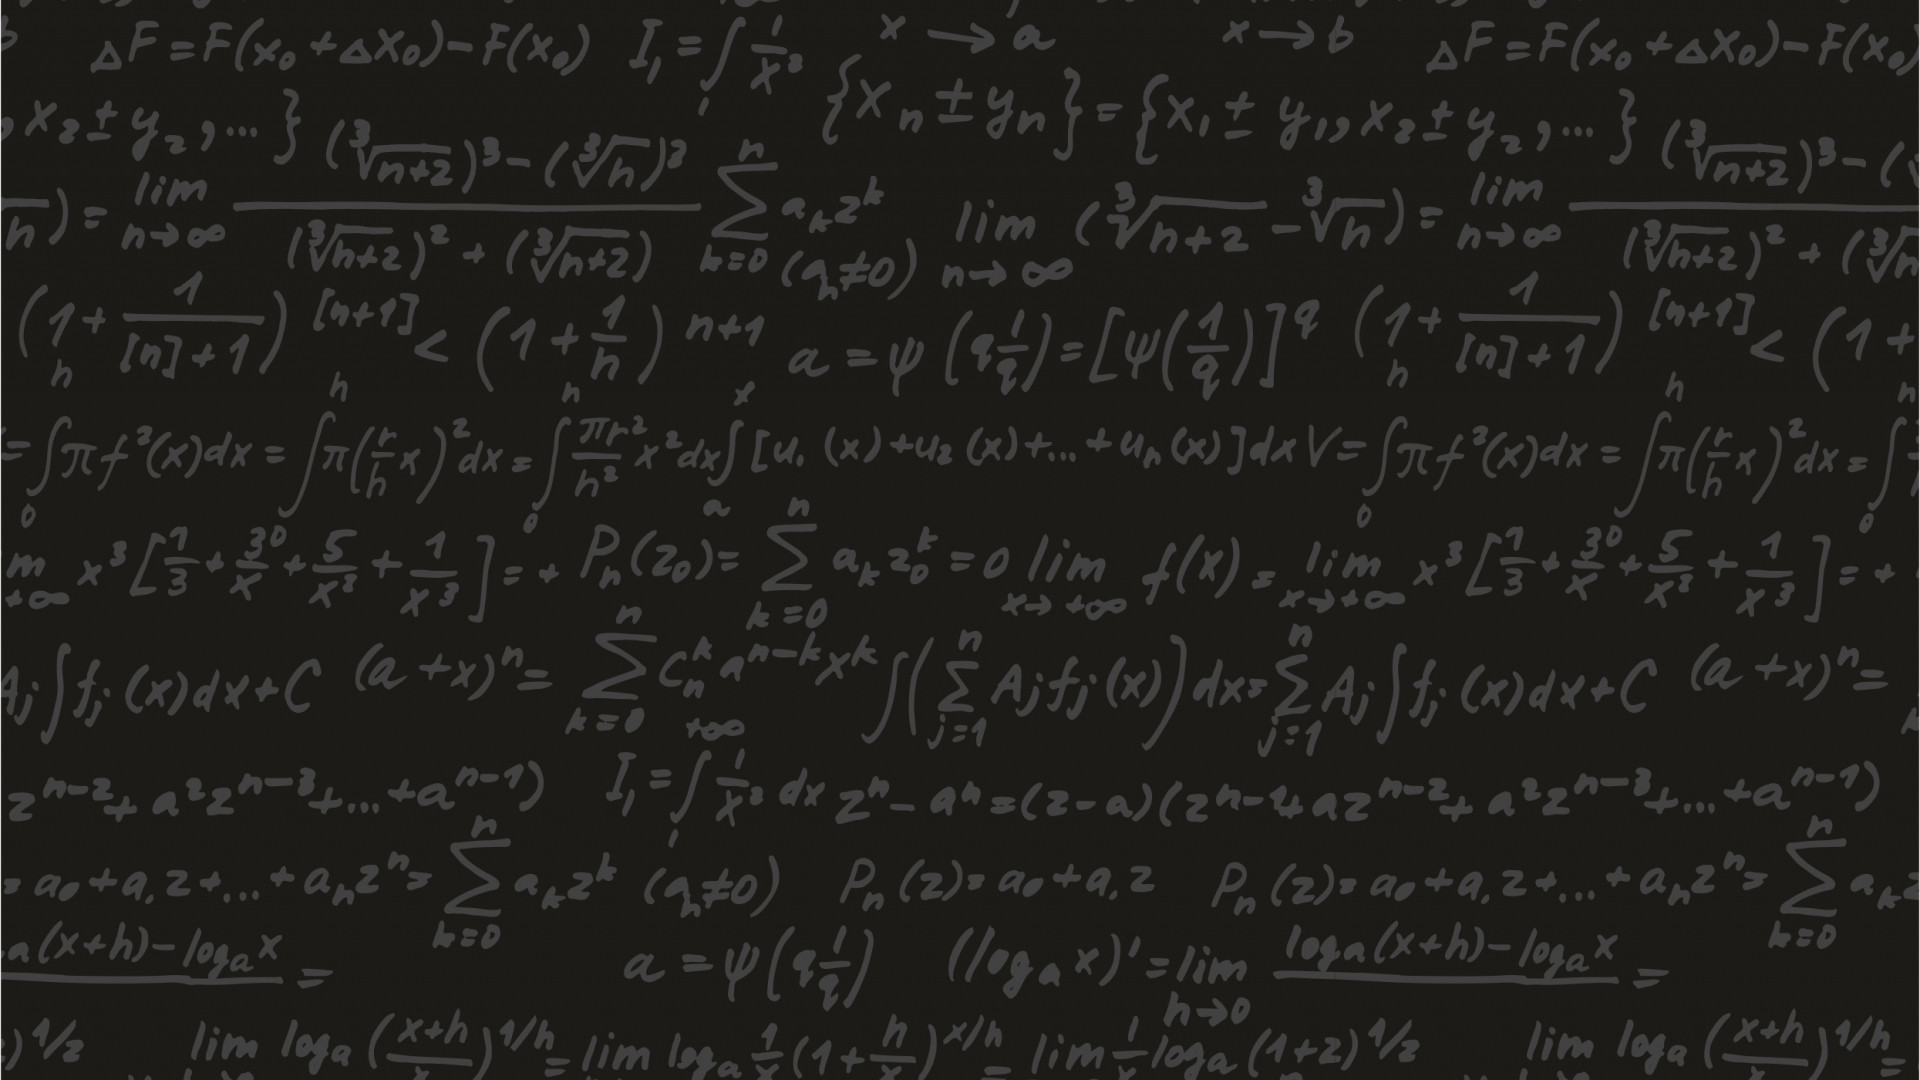 ΔF = F(x₀ + Δx₀) − F(x₀) I₁ = ∫₁ 1/x³ x → a x → b ΔF = F(x₀ + Δx₀) − F(x₀)
x₂ ± y₂, ... } {xₙ ± yₙ} = {x₁ ± y₁, x₂ ± y₂, ... }
) = lim n→∞ ((∛(n+2))³ − (∛n)³) / ((∛(n+2))² + (∛(n+2)) ∑ k=0 n aₖzᵏ (aₙ≠0) lim n→∞ (∛(n+2) − ∛n) = lim n→∞ (∛(n+2))³ − ( / (∛(n+2))² + (
(1 + 1/([n]+1)) [n+1] < (1 + 1/n) n+1 a = ψ(q 1/q) = [ψ(1/q)]^q (1 + 1/([n]+1)) [n+1] < (1 +
= ∫₀ʰ πf²(x)dx = ∫ʰ π(r/h x)²dx = ∫₀ʰ πr²/h² x²dx ∫ₐˣ [u₁(x) + u₂(x) + ... + uₙ(x)]dx V = ∫₀ʰ πf²(x)dx = ∫ʰ π(r/h x)²dx = ∫₀
+∞ x³[1/3 + 3⁰/x + 5/x² + 1/x³] = + Pₙ(z₀) = ∑ k=0 n aₖz₀ᵏ = 0 lim x→+∞ f(x) = lim x→+∞ x³[1/3 + 3⁰/x + 5/x² + 1/x³] = +
Aⱼ∫fⱼ(x)dx + C (a + x)ⁿ = ∑ k=0 n Cₙᵏ aⁿ⁻ᵏxᵏ ∫(∑ j=1 n Aⱼfⱼ(x))dx = ∑ j=1 n Aⱼ∫fⱼ(x)dx + C (a + x)ⁿ =
zⁿ⁻² + a²zⁿ⁻³ + ... + aⁿ⁻¹) I₁ = ∫₁^+∞ 1/x³ dx zⁿ − aⁿ = (z − a)(zⁿ⁻¹ + azⁿ⁻² + a²zⁿ⁻³ + ... + aⁿ⁻¹)
= a₀ + a₁z + ... + aₙzⁿ = ∑ k=0 n aₖzᵏ (aₙ≠0) Pₙ(z) = a₀ + a₁z Pₙ(z) = a₀ + a₁z + ... + aₙzⁿ = ∑ k=0 n aₖz
a(x+h) − logₐx = a = ψ(q 1/q) (logₐx)' = lim h→0 logₐ(x+h) − logₐx =
)^1/z lim logₐ((x+h)/x)^1/h = lim logₐ 1/x (1 + h/x)^x/h = lim 1/x logₐ(1+z)^1/z lim logₐ((x+h)/x)^1/h =